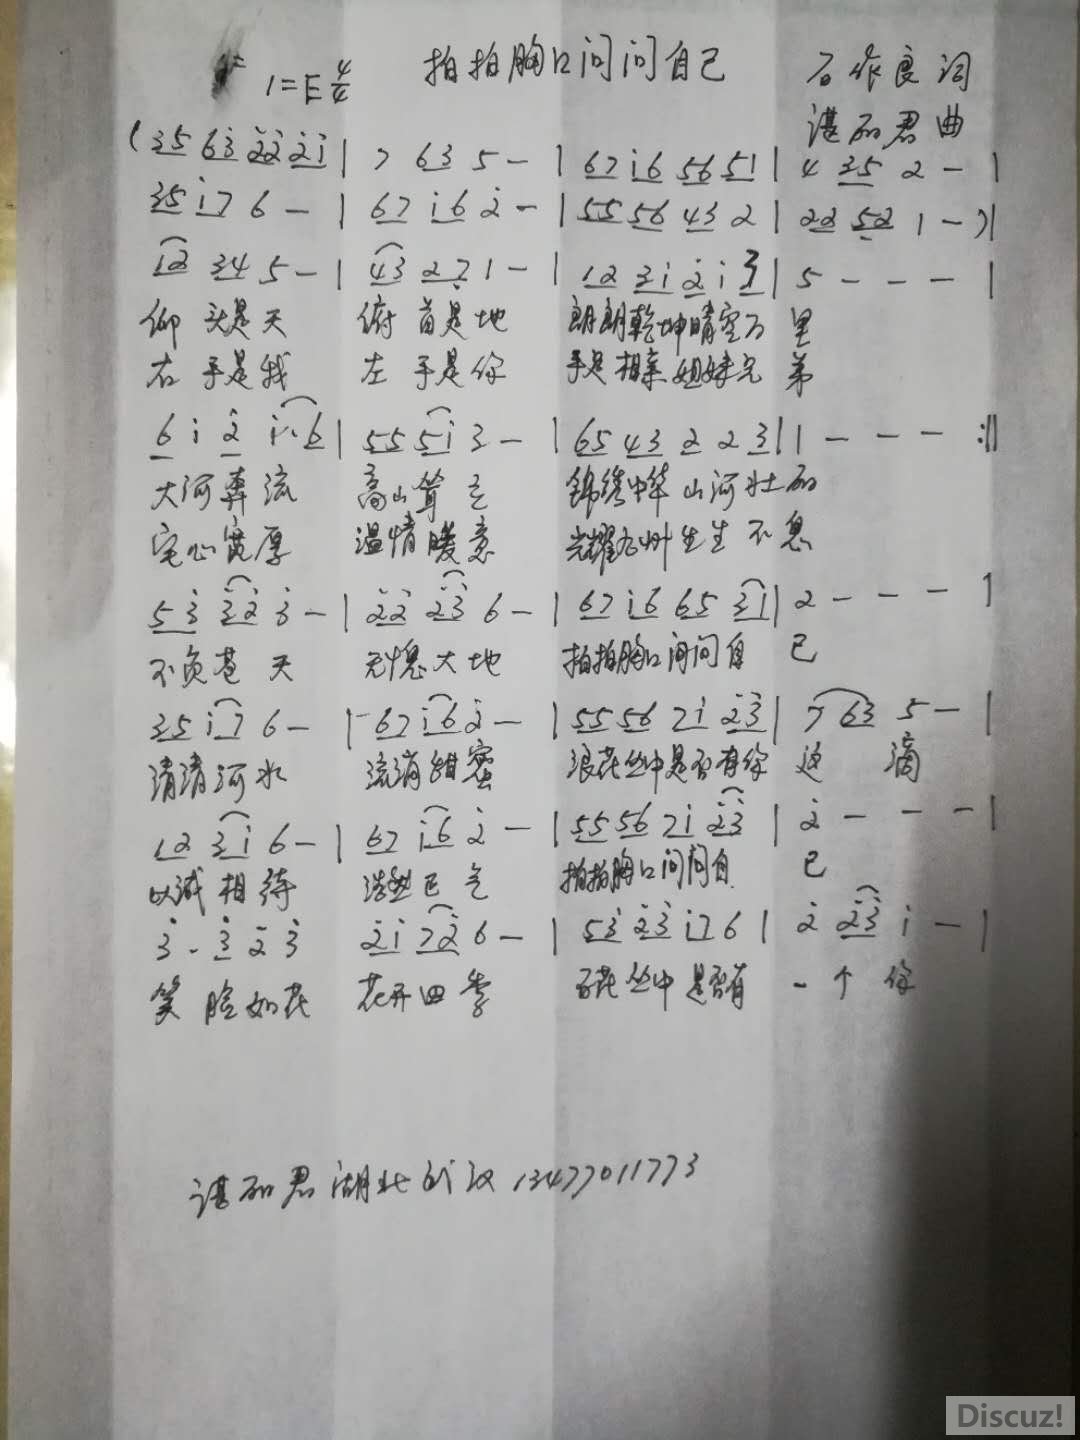 1=E 4/4 拍拍胸口问问自己 石作良词
谌丽君曲
(35 63 22 21 | 7 63 5 - | 67 i6 56 51 | 4 35 2 - |
35 i7 6 - | 67 i6 2 - | 55 56 43 2 | 22 52 1 - )|
12 34 5 - | 43 27 1 - | 12 3i 2i 3 | 5 - - - |
仰头是天 俯首是地 朗朗乾坤晴空万里
右手是我 左手是你 手足相亲姐妹兄弟
6 i 2 i·6 | 55 5i 3 - | 65 43 2 2 3 | 1 - - - :||
大河奔流 高山耸立 锦绣中华山河壮丽
宅心宽厚 温情暖意 光耀九州生生不息
53 32 3 - | 22 23 6 - | 67 i6 65 31 | 2 - - - |
不负苍天 无愧大地 拍拍胸口问问自己
35 i7 6 - | 67 i6 2 - | 55 56 7i 23 | 7 63 5 - |
清清河水 流淌甜蜜 浪花丛中是否有你这滴
12 3i 6 - | 67 i6 2 - | 55 56 7i 23 | 2 - - - |
以诚相待 浩然正气 拍拍胸口问问自己
3 · 3 2 3 2i 72 6 - | 53 23 i7 6 | 2 23 i - |
笑脸如花 花开四季 百花丛中是否有一个你
谌丽君湖北武汉13477011773
Discuz!